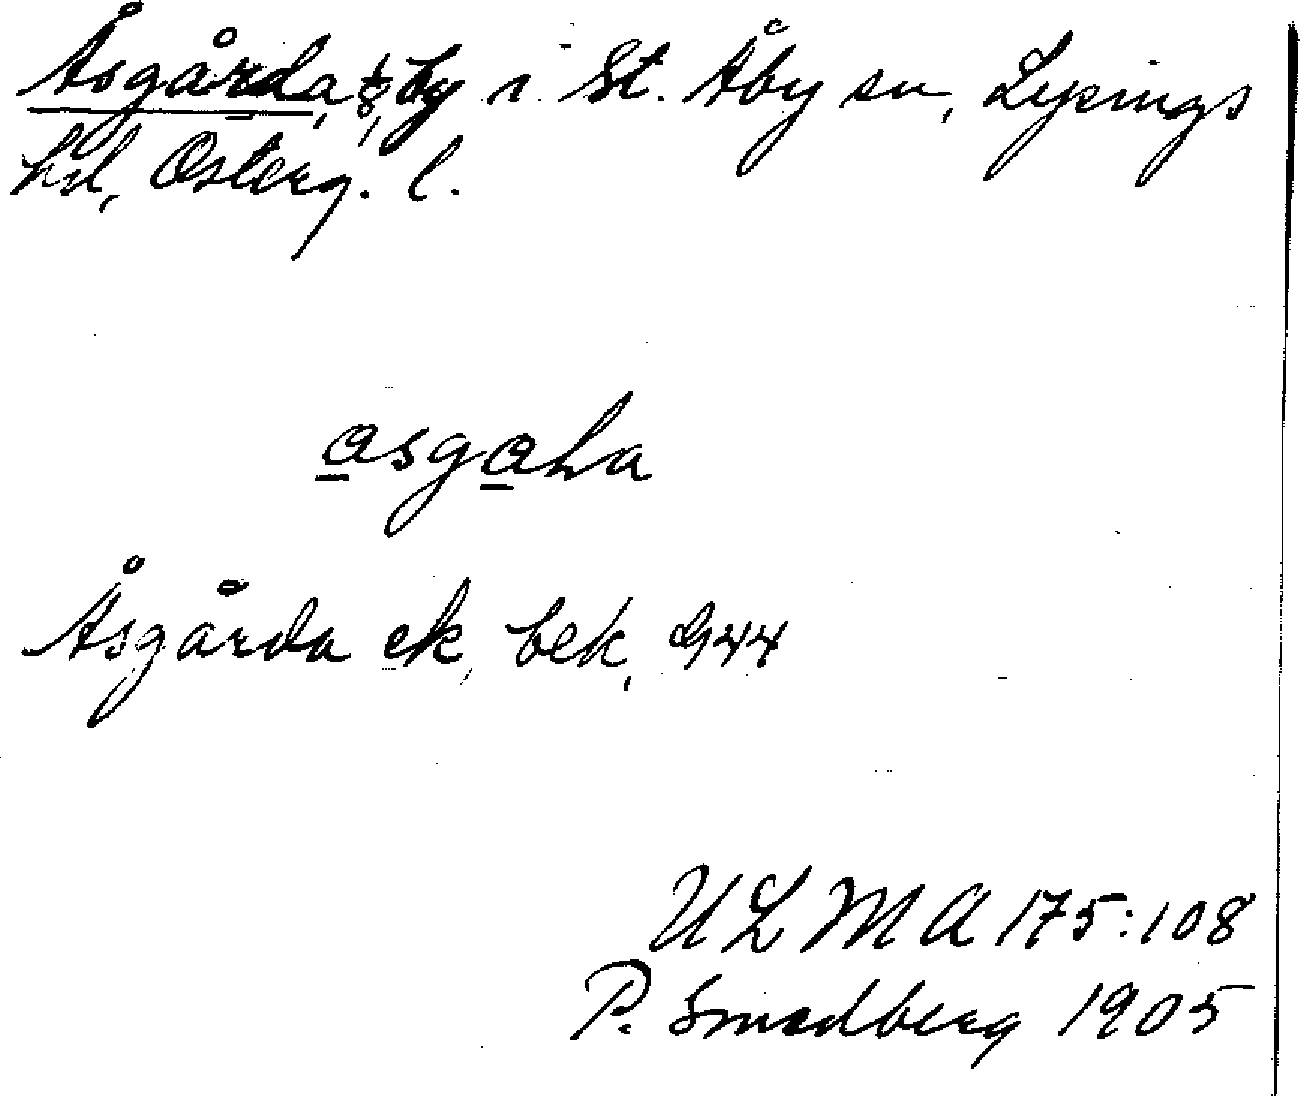 Åsgårda, by i St. Åby sn, Lysings
hd, Österg. l.
asgaha
Åsgårda ek, bek, G44
ULMA 175:108
P. Smedberg 1905